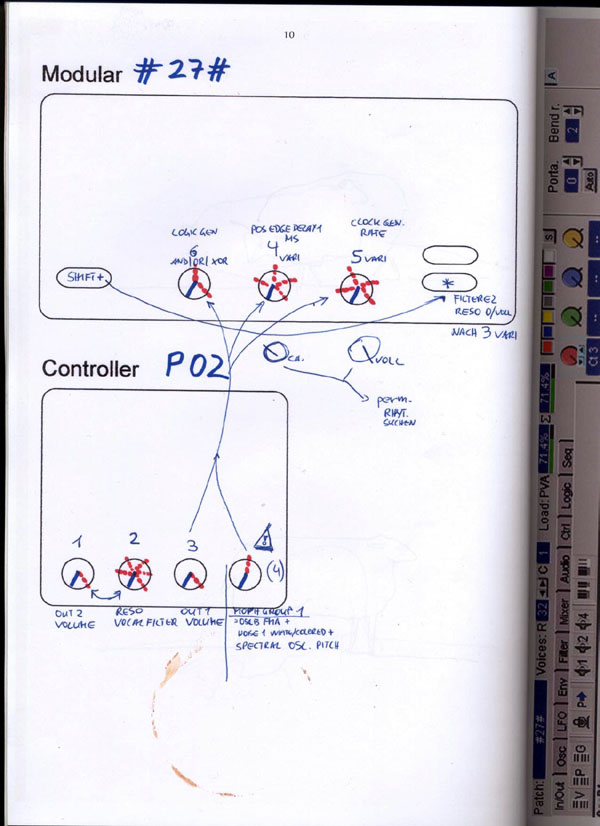 10
Modular #27#
LOGIC GEN
6
AND/OR/XOR
POS EDGE DELAY1
MS
4
VARI
CLOCK GEN.
RATE
5 VARI
SHIFT+
*
FILTERE2
RESO 0/VOLL
NACH 3 VARI
Controller P02
VOLL
perm.
RHYT.
SUCHEN
1
2
3
(4)
OUT 2
VOLUME
RESO
VOCALFILTER
OUT 1
VOLUME
MORPH GROUP 1
OSCB FMA +
NOISE 1 WHITE/COLORED +
SPECTRAL OSC. PITCH
A
Bend r.
2
Porta.
0
Auto
S
Ct 3
Patch: #27# Voices: R 32 C 1 Load: PVA 71.4% Σ 71.4%
In/Out Osc LFO Env Filter Mixer Audio Ctrl Logic Seq
V P G P 1 2 4